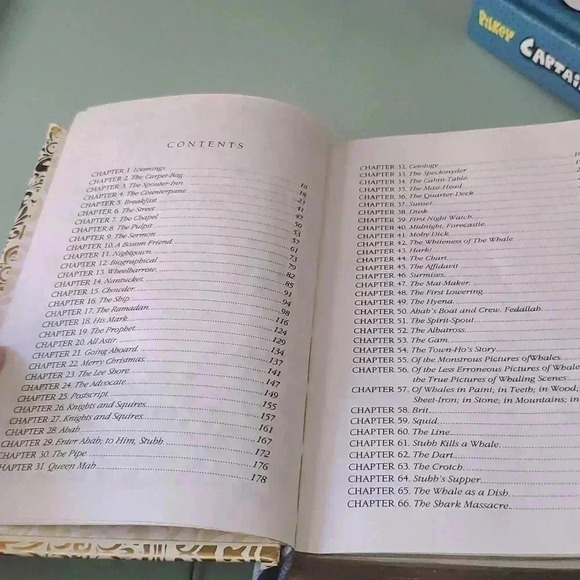 PILKEY CAPTAI
CONTENTS
CHAPTER 1. Loomings 10
CHAPTER 2. The Carpet-Bag 18
CHAPTER 3. The Spouter-Inn 23
CHAPTER 4. The Counterpane 41
CHAPTER 5. Breakfast 47
CHAPTER 6. The Street 50
CHAPTER 7. The Chapel 53
CHAPTER 8. The Pulpit 57
CHAPTER 9. The Sermon
CHAPTER 10. A Bosom Friend 73
CHAPTER 11. Nightgown 79
CHAPTER 12. Biographical 82
CHAPTER 13. Wheelbarrow 85
CHAPTER 14. Nantucket 91
CHAPTER 15. Chowder 94
CHAPTER 16. The Ship 98
CHAPTER 17. The Ramadan 116
CHAPTER 18. His Mark 124
CHAPTER 19. The Prophet 129
CHAPTER 20. All Astir 134
CHAPTER 21. Going Aboard 137
CHAPTER 22. Merry Christmas 141
CHAPTER 23. The Lee Shore 147
CHAPTER 24. The Advocate 149
CHAPTER 25. Postscript 155
CHAPTER 26. Knights and Squires 157
CHAPTER 27. Knights and Squires 161
CHAPTER 28. Ahab 167
CHAPTER 29. Enter Ahab; to Him, Stubb 172
CHAPTER 30. The Pipe 176
HAPTER 31. Queen Mab 178
CHAPTER 32. Cetology
CHAPTER 33. The Specksnyder
CHAPTER 34. The Cabin-Table
CHAPTER 35. The Mast-Head
CHAPTER 36. The Quarter-Deck
CHAPTER 37. Sunset
CHAPTER 38. Dusk
CHAPTER 39. First Night Watch
CHAPTER 40. Midnight, Forecastle
CHAPTER 41. Moby Dick
CHAPTER 42. The Whiteness of The Whale
CHAPTER 43. Hark!
CHAPTER 44. The Chart
CHAPTER 45. The Affidavit
CHAPTER 46. Surmises
CHAPTER 47. The Mat-Maker
CHAPTER 48. The First Lowering
CHAPTER 49. The Hyena
CHAPTER 50. Ahab's Boat and Crew. Fedallah
CHAPTER 51. The Spirit-Spout
CHAPTER 52. The Albatross
CHAPTER 53. The Gam
CHAPTER 54. The Town-Ho's Story
CHAPTER 55. Of the Monstrous Pictures ofWhales
CHAPTER 56. Of the Less Erroneous Pictures of Whale
the True Pictures of Whaling Scenes
CHAPTER 57. Of Whales in Paint; in Teeth; in Wood;
Sheet-Iron; in Stone; in Mountains; in
CHAPTER 58. Brit
CHAPTER 59. Squid
CHAPTER 60. The Line
CHAPTER 61. Stubb Kills a Whale
CHAPTER 62. The Dart
CHAPTER 63. The Crotch
CHAPTER 64. Stubb's Supper
CHAPTER 65. The Whale as a Dish
CHAPTER 66. The Shark Massacre